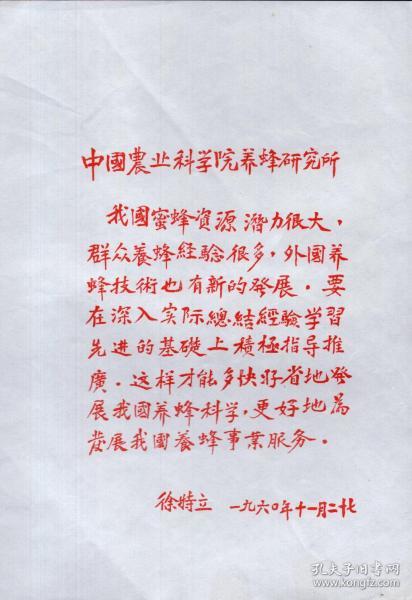 中國農业科学院养蜂研究所
我國蜜蜂資源潛力很大，
群众養蜂経驗很多，外國养
蜂技術也有新的發展．要
在深入实际總結經驗学習
先进的基礎上積極指导推
廣．这样才能多快好省地發
展我國养蜂科学，更好地為
發展我國養蜂事業服务．
徐特立 一九六〇年十一月二十七
孔夫子旧书网